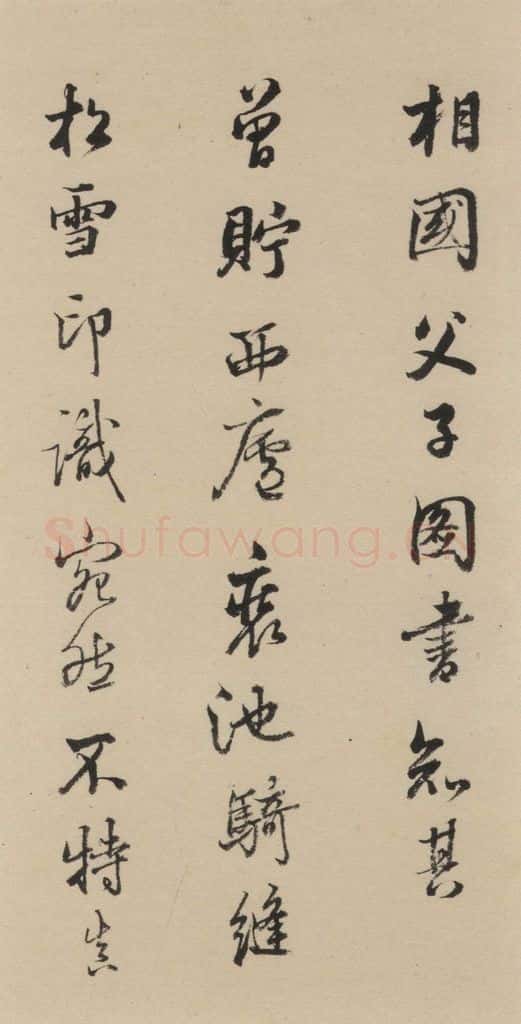 相國父子圖書知其
曾貯西廬池騎縫
松雪印識宛然不特真
Shufawang.cn